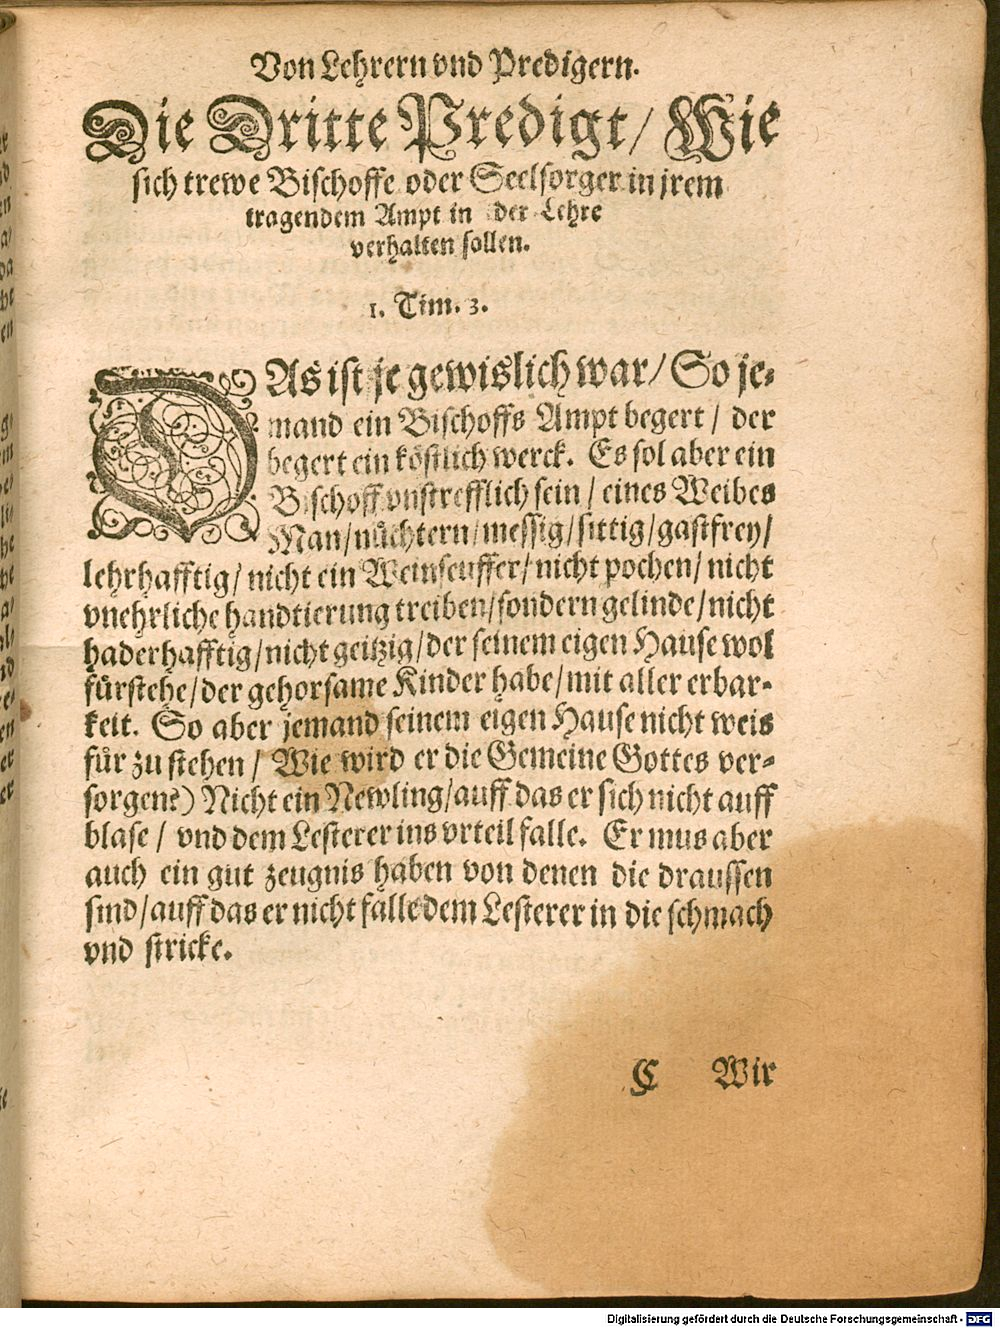 Von Lehrern vnd Predigern.
Die Dritte Predigt/ Wie
sich trewe Bischoffe oder Seelsorger in jrem
tragendem Ampt in der Lehre
verhalten sollen.
1. Tim. 3.
DAs ist je gewislich war/ So je-
mand ein Bischoffs Ampt begert / der
begert ein köstlich werck. Es sol aber ein
Bischoff vnstrefflich sein / eines Weibes
Man/nüchtern/messig/sittig/gastfrey/
lehrhafftig/ nicht ein Weinseuffer/nicht pochen/ nicht
vnehrliche handtierung treiben/sondern gelinde/nicht
haderhafftig/nicht geitzig/der seinem eigen Hause wol
fürstehe/der gehorsame Kinder habe/mit aller erbar-
keit. So aber jemand seinem eigen Hause nicht weis
für zu stehen / Wie wird er die Gemeine Gottes ver-
sorgen?) Nicht ein Newling/auff das er sich nicht auff
blase / vnd dem Lesterer ins vrteil falle. Er mus aber
auch ein gut zeugnis haben von denen die draussen
sind/auff das er nicht falle dem Lesterer in die schmach
vnd stricke.
C Wir
Digitalisierung gefördert durch die Deutsche Forschungsgemeinschaft - DFG